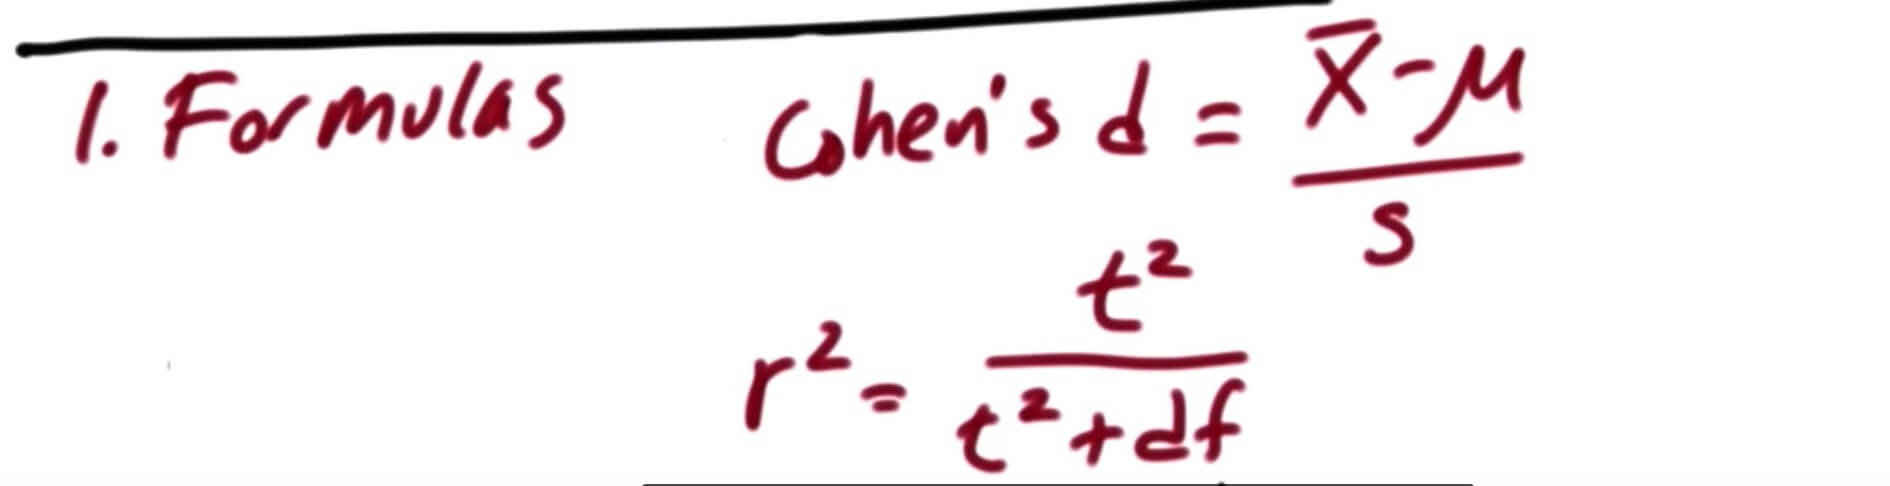 1. Formulas Cohen's d = x̄ - μ / s
r² = t² / t² + df